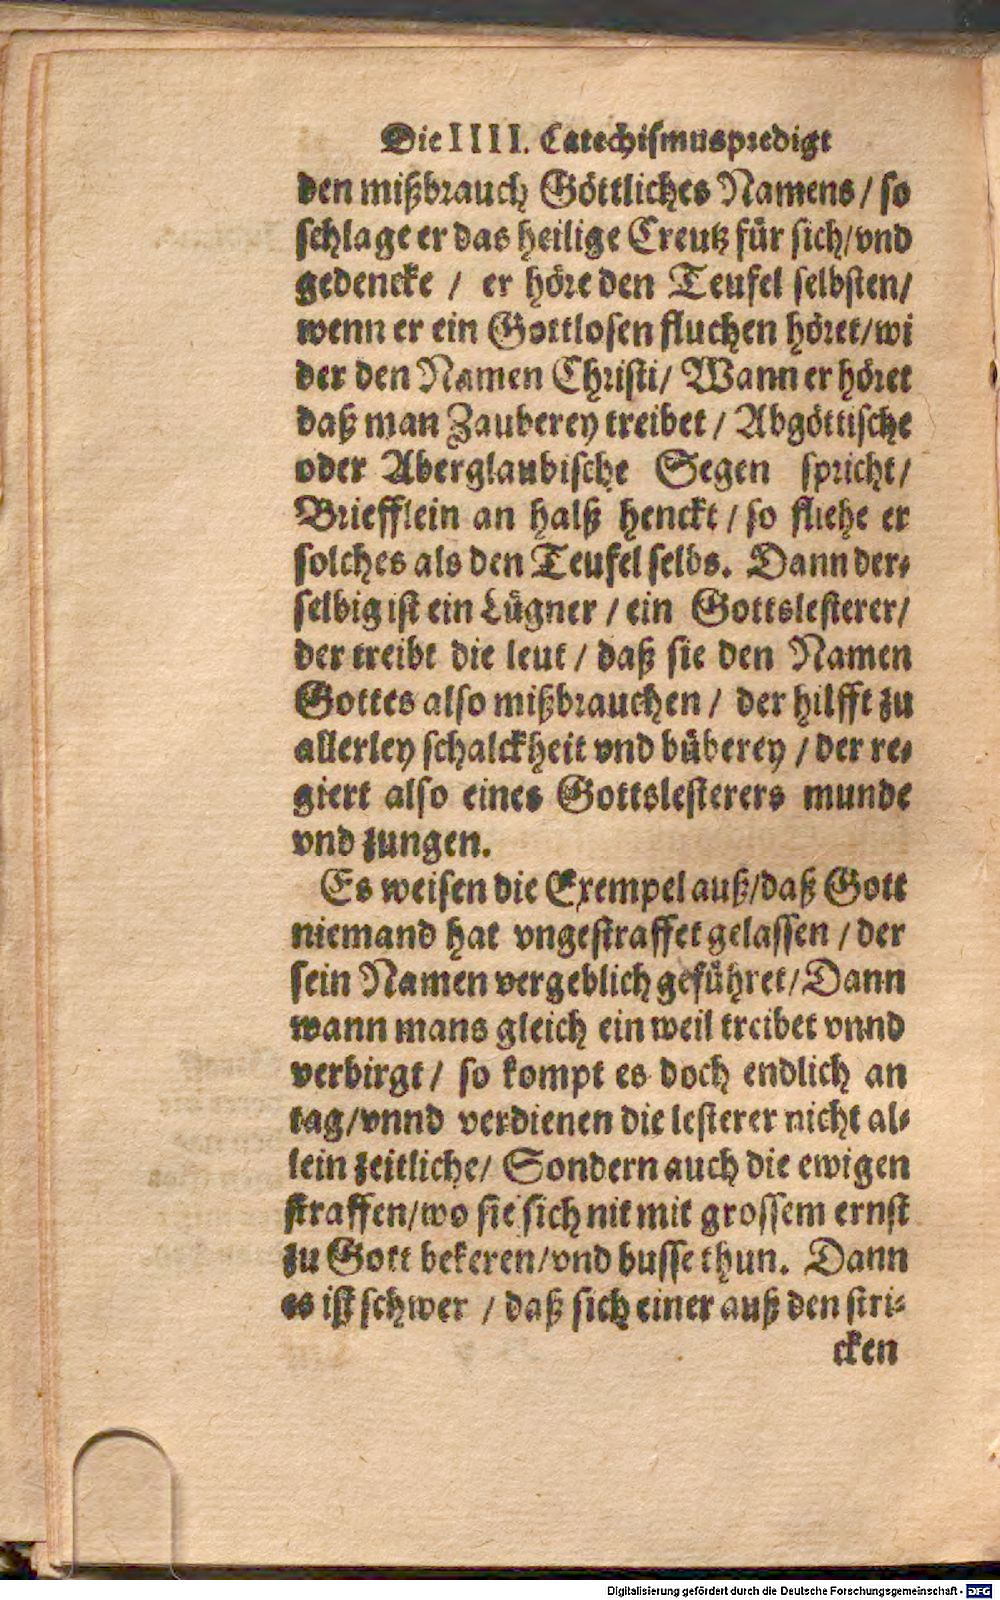 Die IIII. Catechismuspredigt
den mißbrauch Göttliches Namens / so
schlage er das heilige Creutz für sich/vnd
gedencke / er höre den Teufel selbsten/
wenn er ein Gottlosen fluchen höret/wi
der den Namen Christi/ Wann er höret
daß man Zauberey treibet / Abgöttische
oder Aberglaubische Segen spricht/
Briefflein an halß henckt / so fliehe er
solches als den Teufel selbs. Dann der-
selbig ist ein Lügner / ein Gottslesterer/
der treibt die leut / daß sie den Namen
Gottes also mißbrauchen / der hilfft zu
allerley schalckheit vnd büberey / der re-
giert also eines Gottslesterers munde
vnd zungen.
Es weisen die Exempel auß/daß Gott
niemand hat vngestraffet gelassen / der
sein Namen vergeblich geführet/Dann
wann mans gleich ein weil treibet vnnd
verbirgt / so kompt es doch endlich an
tag/vnnd verdienen die lesterer nicht al-
lein zeitliche/ Sondern auch die ewigen
straffen/wo sie sich nit mit grossem ernst
zu Gott bekeren/vnd busse thun. Dann
es ist schwer / daß sich einer auß den stri-
cken
Digitalisierung gefördert durch die Deutsche Forschungsgemeinschaft - DFG